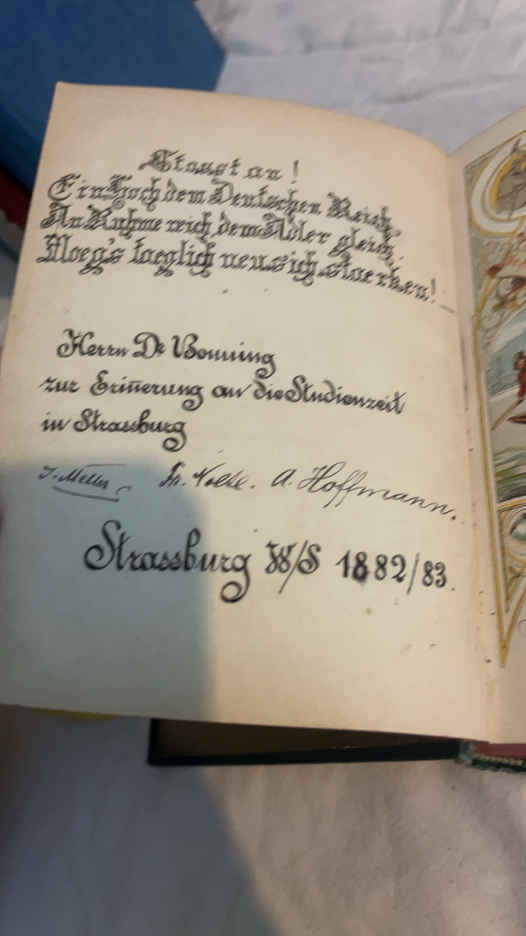 Stosst an!
Ein Hoch dem Deutschen Reich,
An Ruhme reich dem Adler gleich,
Moeg's taeglich neu sich staerken!
Herrn Dr Bonning
zur Erinnerung an die Studienzeit
in Strassburg
A. Hoffmann.
Strassburg W/S 1882/83.